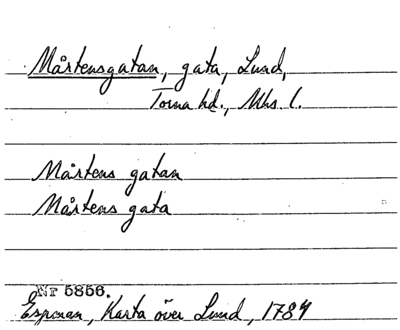 Mårtensgatan, gata, Lund,
Torna hd., Mhs l.
Mårtens gatan
Mårtens gata
Nr 5856.
Espman, Karta över Lund, 1784